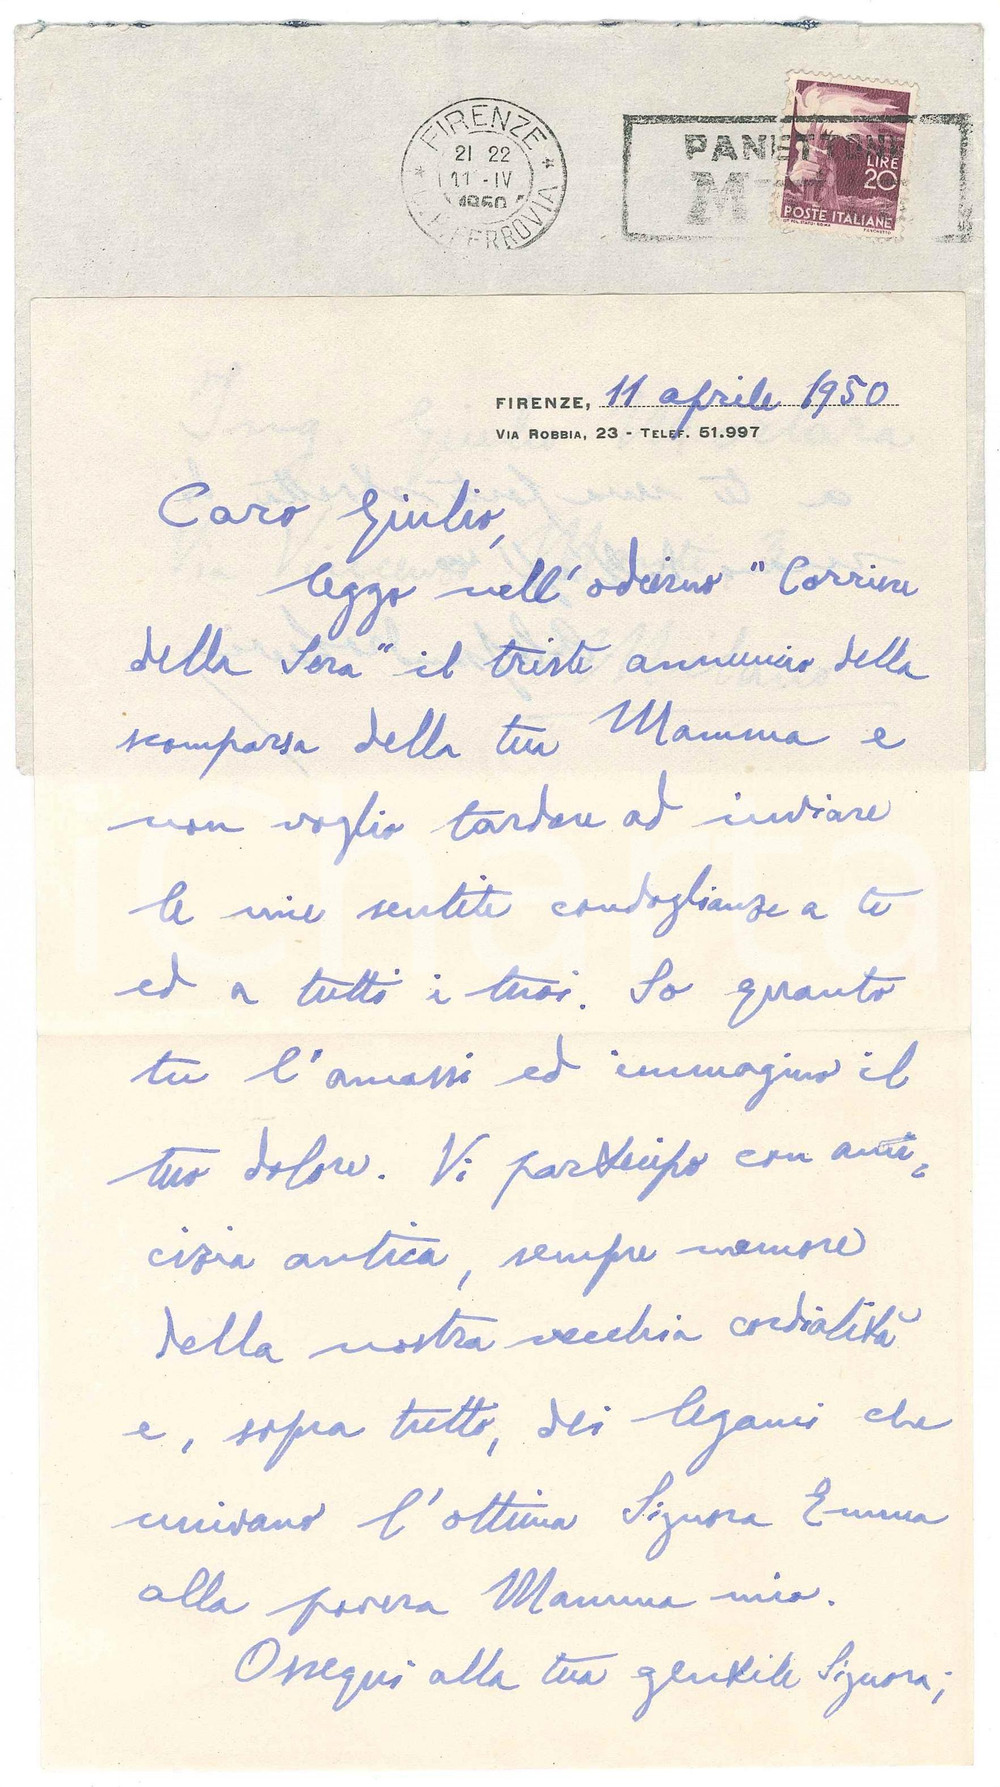 FIRENZE
21 22
11 - IV
1950
FERROVIA
PANETTONI
M
LIRE
20
POSTE ITALIANE
FIRENZE, 11 aprile 1950
VIA ROBBIA, 23 - TELEF. 51.997
Caro Giulio,
leggo nell'odierno "Corriere
della Sera" il triste annuncio della
scomparsa della tua Mamma e
non voglio tardare ad inviare
le mie sentite condoglianze a te
ed a tutti i tuoi. So quanto
tu l'amassi ed immagino il
tuo dolore. Vi partecipo con ami-
cizia antica, sempre memore
della nostra vecchia cordialità
e, sopra tutto, dei legami che
univano l'ottima Signora Emma
alla povera Mamma mia.
Ossequi alla tua gentile Signora;